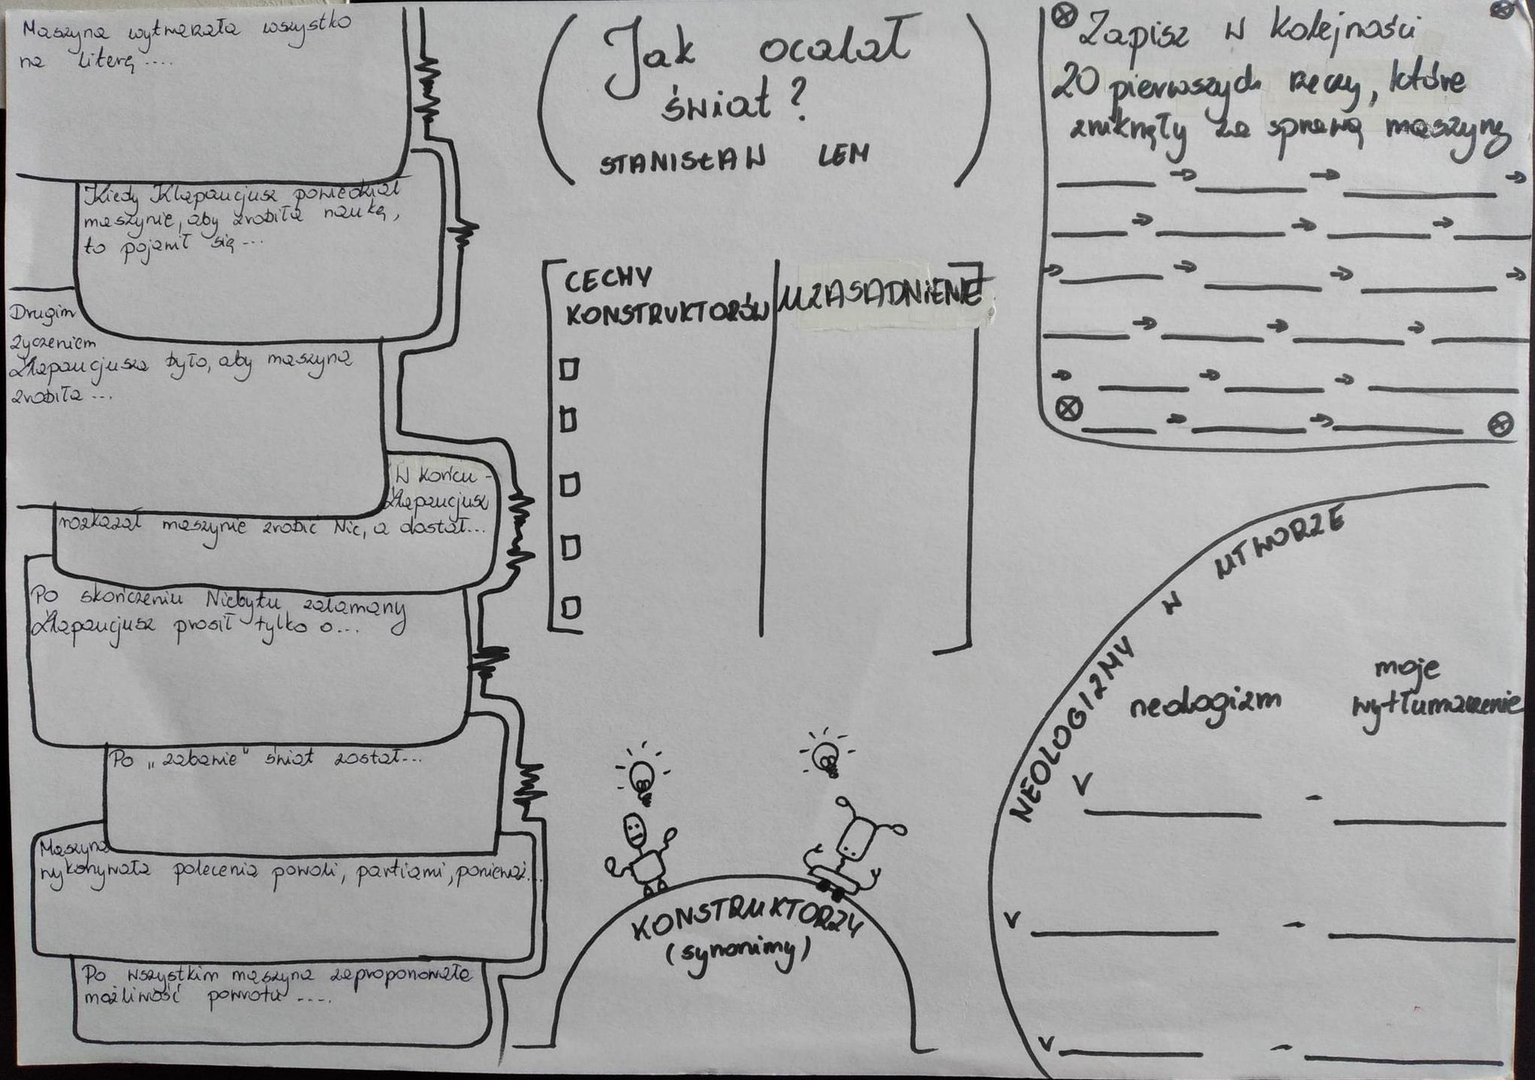 Maszyna wytwarzała wszystko
na literę ....
Kiedy Klapaucjusz powiedział
maszynie, aby zrobiła naukę,
to pojawił się ...
Drugim
życzeniem
Klapaucjusza było, aby maszyna
zrobiła ...
W końcu
Klapaucjusz
rozkazał maszynie zrobić Nic, a dostał...
Po skończeniu Niebytu załamany
Klapaucjusz prosił tylko o...
Po „zabawie" świat został...
Maszyna
wykonywała polecenia powoli, partiami, ponieważ...
Po wszystkim maszyna zaproponowała
możliwość powrotu ....
Jak ocalał
świat?
STANISŁAW LEM
CECHY
KONSTRUKTORÓW
UZASADNIENIE
KONSTRUKTORZY
(synonimy)
Zapisz w kolejności
20 pierwszych rzeczy, które
zniknęły za sprawą maszyny
NEOLOGIZMY W UTWORZE
neologizm
moje
wytłumaczenie